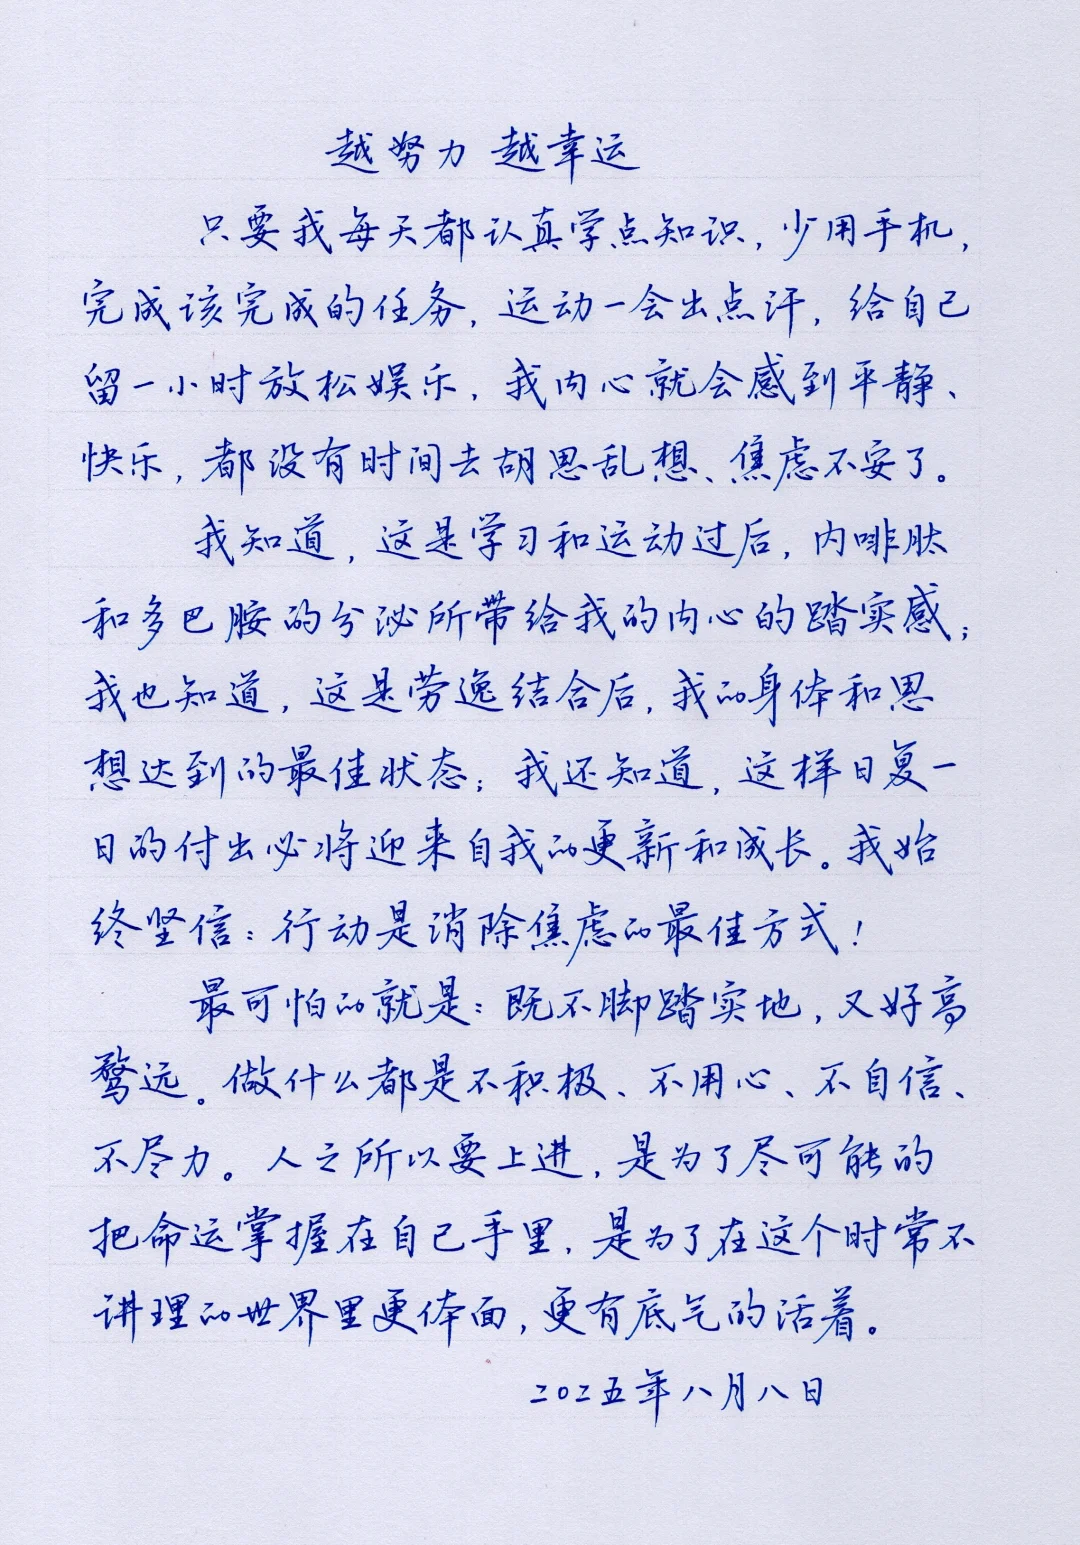 越努力 越幸运
只要我每天都认真学点知识，少用手机，
完成该完成的任务，运动一会出点汗，给自己
留一小时放松娱乐，我内心就会感到平静、
快乐，都没有时间去胡思乱想、焦虑不安了。
我知道，这是学习和运动过后，内啡肽
和多巴胺的分泌所带给我的内心的踏实感；
我也知道，这是劳逸结合后，我的身体和思
想达到的最佳状态；我还知道，这样日复一
日的付出必将迎来自我的更新和成长。我始
终坚信：行动是消除焦虑的最佳方式！
最可怕的就是：既不脚踏实地，又好高
骛远。做什么都是不积极、不用心、不自信、
不尽力。人之所以要上进，是为了尽可能的
把命运掌握在自己手里，是为了在这个时常不
讲理的世界里更体面，更有底气的活着。
二〇二五年八月八日